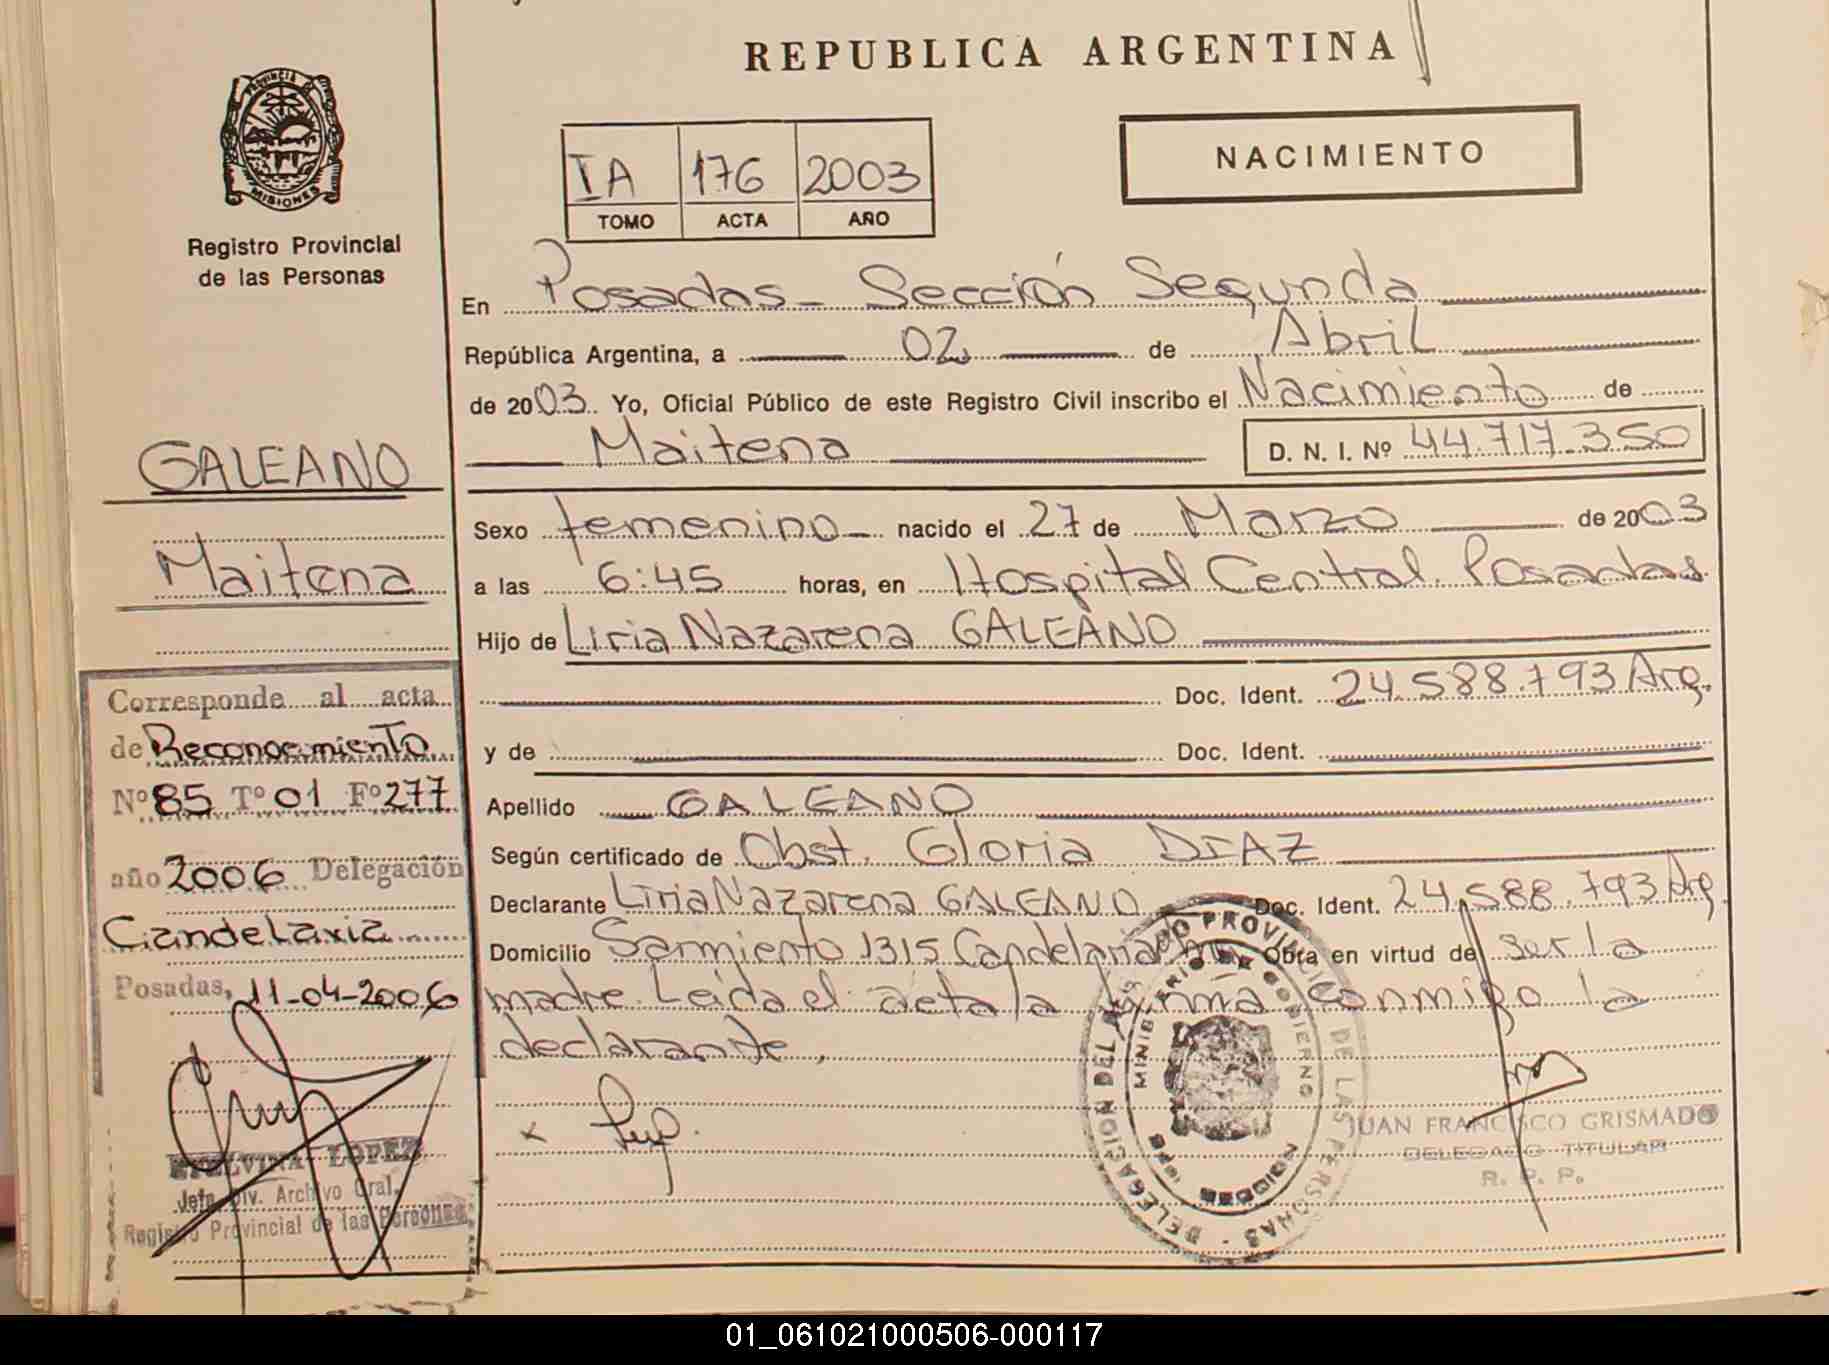 REPUBLICA ARGENTINA
PROVINCIA
MISIONES
Registro Provincial
de las Personas
IA 176 2003
TOMO ACTA AÑO
NACIMIENTO
En Posadas - Sección Segunda
República Argentina, a 02 de Abril
de 2003. Yo, Oficial Público de este Registro Civil inscribo el Nacimiento de
Maitena D. N. I. Nº 44.717.350
GALEANO
Maitena
Sexo femenino - nacido el 27 de Marzo de 2003
a las 6:45 horas, en Hospital Central. Posadas.
Hijo de Liria Nazarena GALEANO
Doc. Ident. 24.588.793 Arg.
y de Doc. Ident.
Apellido GALEANO
Según certificado de Obst. Gloria DIAZ
Declarante Liria Nazarena GALEANO Doc. Ident. 24.588.793 Arg.
Domicilio Sarmiento 1315 Candelaria Obra en virtud de ser la
madre. Leída el acta la firma conmigo la
declarante,
Corresponde al acta
de Reconocimiento
Nº 85 Tº 01 Fº 277
año 2006 Delegación
Candelaria
Posadas, 11-04-2006
ETELVINA LOPEZ
Jefa Div. Archivo Gral.
Registro Provincial de las Personas
DELEGACION DEL REGISTRO PROVINCIAL DE LAS PERSONAS
MINISTERIO DE GOBIERNO
MISIONES
JUAN FRANCISCO GRISMADO
DELEGADO TITULAR
R. P. P.
01_061021000506-000117